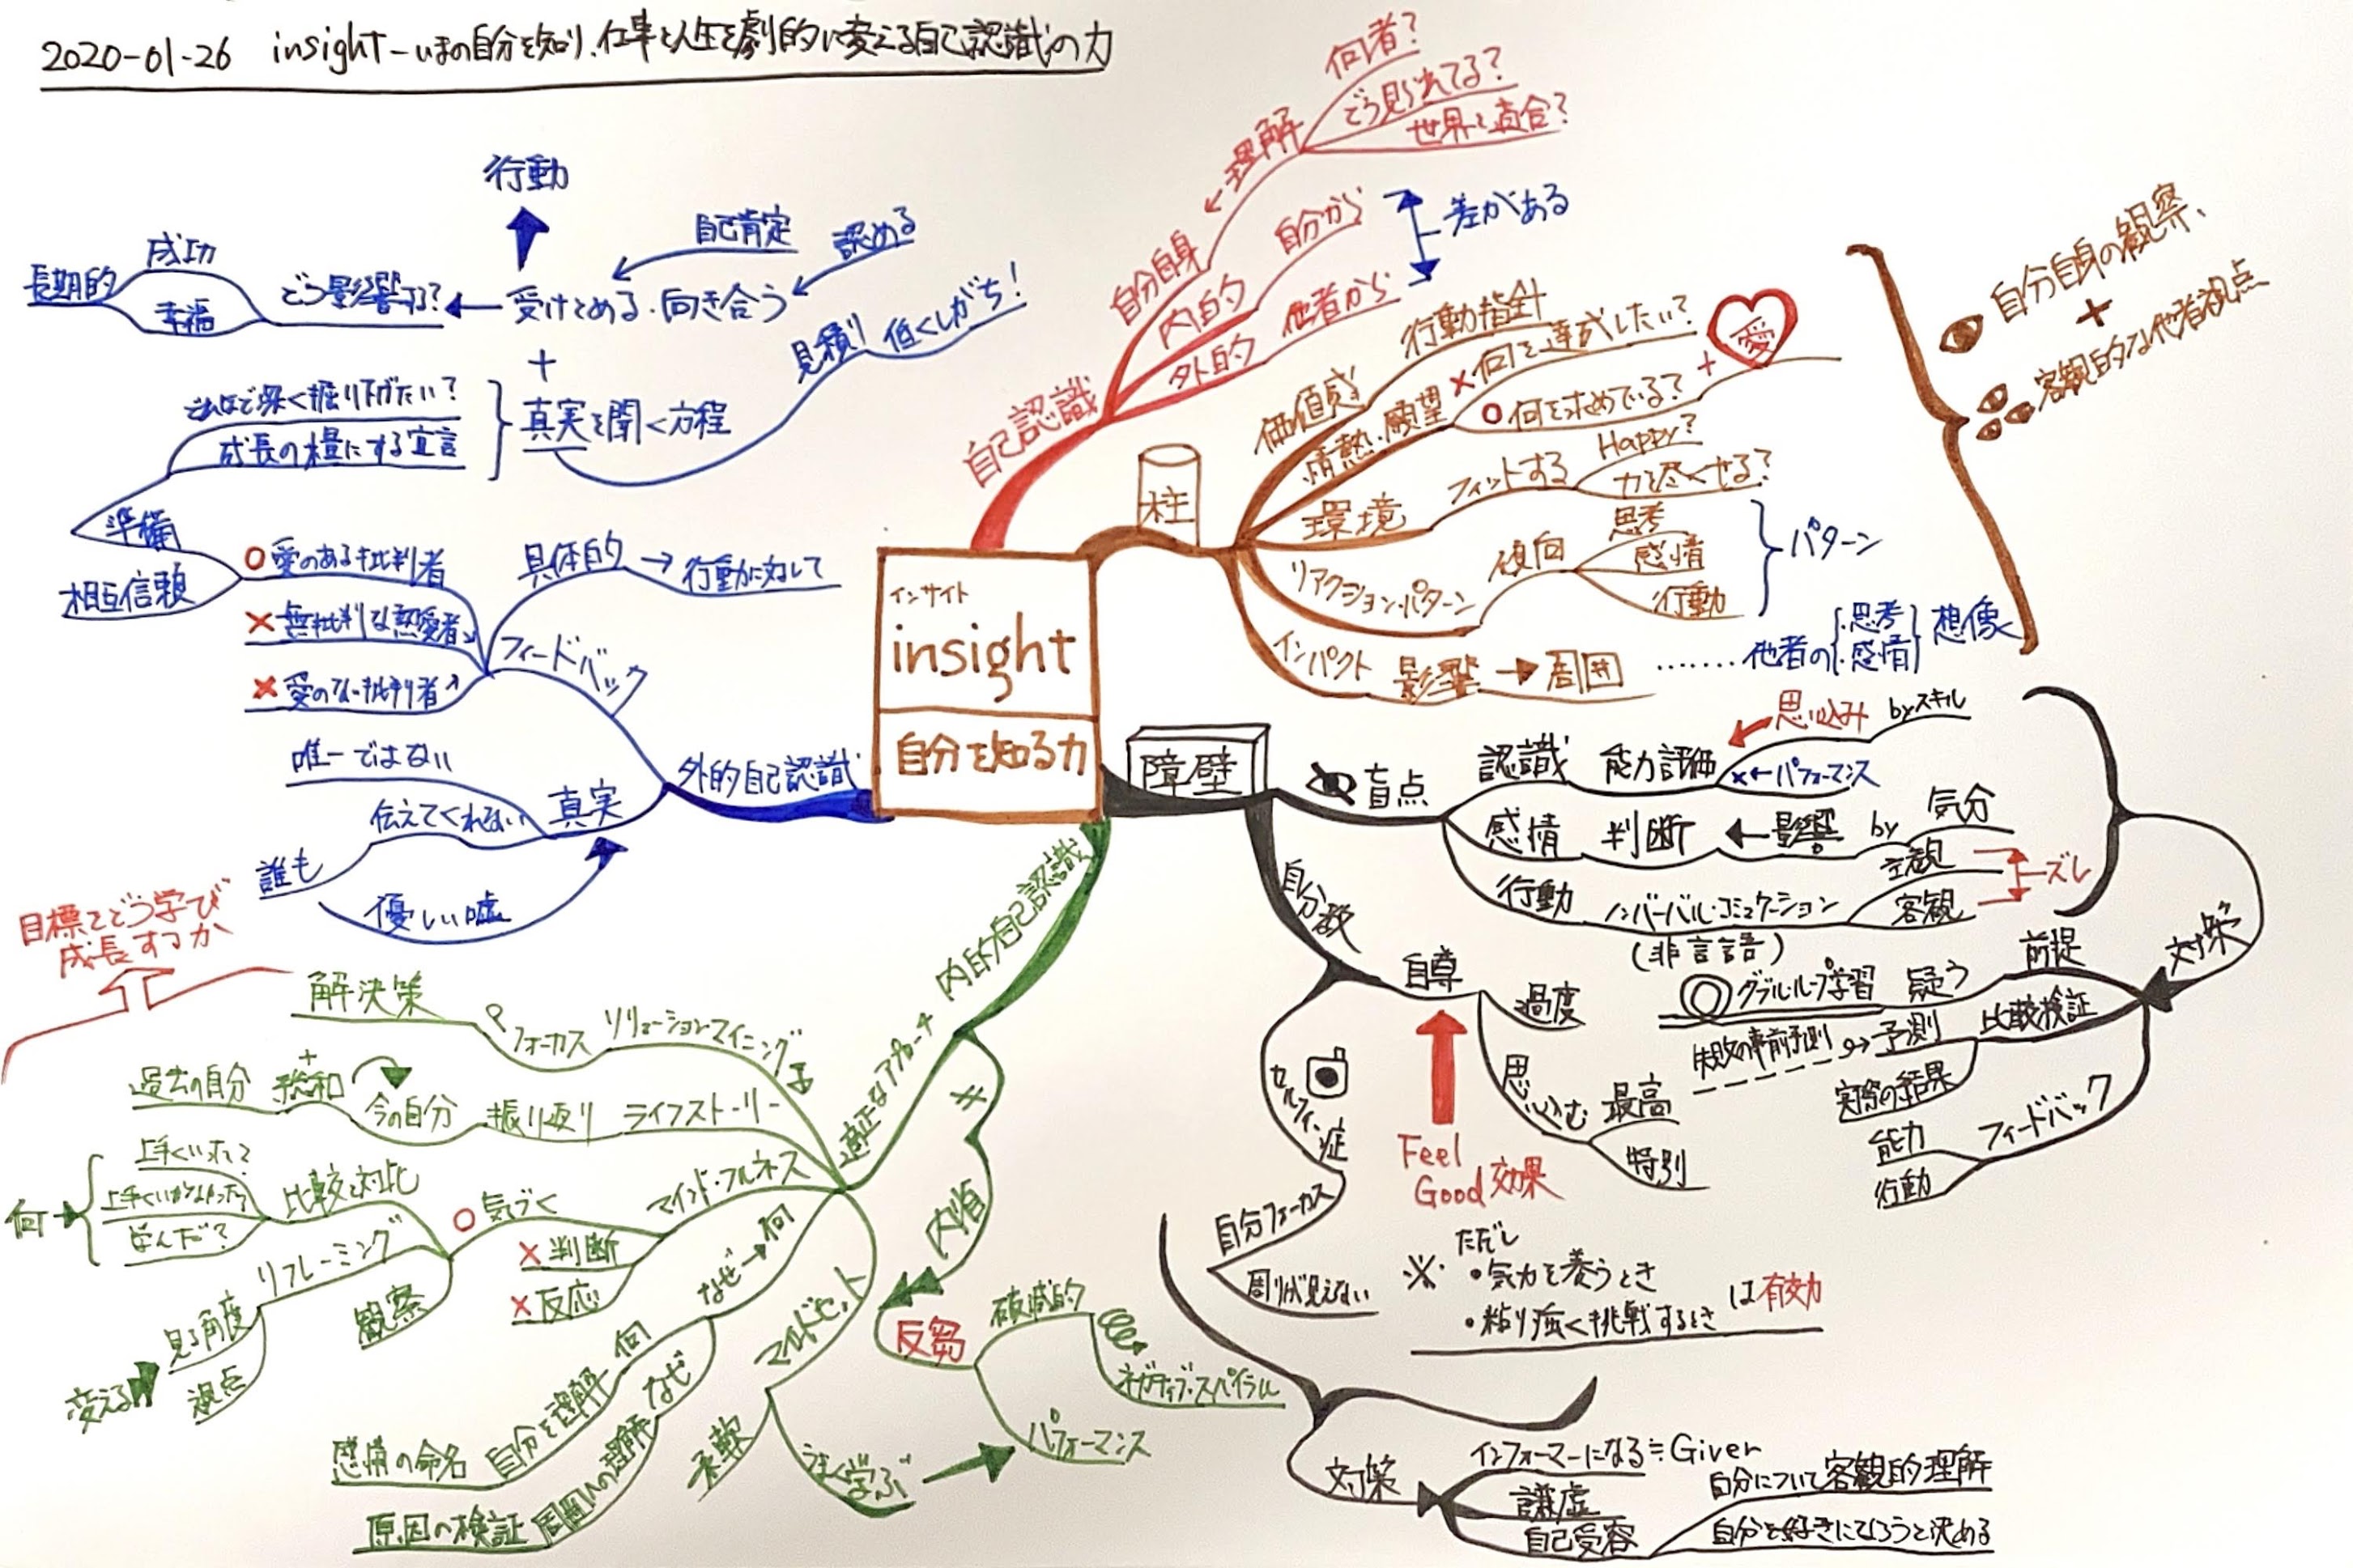 2020-01-26 insight－いまの自分を知り、仕事と人生を劇的に変える自己認識の力
インサイト
insight
自分を知る力
自己認識
自分自身
理解
何者？
どう見られてる？
世界と適合？
内的
自分から
外的
他者から
差がある
柱
価値感
行動指針
情熱・願望
×何を達成したい？
○何を求めている？
+
愛
環境
フィットする
Happy？
力を尽くせる？
リアクション・パターン
傾向
思考
感情
行動
パターン
インパクト
影響→周囲
………他者の
・思考
・感情
想像
自分自身の観察、
+
客観的な他者視点
障壁
盲点
認識
能力評価
思い込み
byスキル
×←パフォーマンス
感情
判断
←影響
by
気分
行動
ノンバーバル・コミュニケーション
(非言語)
主観
客観
ズレ
対策
前提
疑う
ダブル・ループ学習
比較検証
予測
失敗の事前予測
実際の結果
フィードバック
能力
行動
自分教
自尊
過度
思い込む
最高
特別
Feel
Good効果
セルフィー症
自分フォーカス
周りが見えない
※ ただし
・気力を養うとき
・粘り強く挑戦するとき
は有効
対策
インフォーマーになる≒Giver
謙虚
自己受容
自分について客観的理解
自分を好きになろうと決める
内的自己認識
≠
内省
反芻
破滅的
ネガティブ・スパイラル
パフォーマンス
適正なアプローチ
ソリューションマイニング
フォーカス
解決策
目標をどう学び
成長するか
ライフストーリー
振り返り
今の自分
総和
+
過去の自分
マインド・フルネス
○気づく
×判断
×反応
比較と対比
上手くいった？
上手くいかなかった？
学んだ？
何→
リフレーミング
見る角度
視点
変える
観察
なぜ→何
何
自分を理解
感情の命名
なぜ
周囲への理解
原因の検証
マインドセット
柔軟
学ぶ
外的自己認識
フィードバック
具体的→行動に対して
○愛のある批判者
×無批判な熱愛者
×愛のない批判者
準備
相互信頼
どれほど深く掘り下げたい？
成長の糧にする宣言
真実を聞く方程
見積り
低くしがち！
+
受けとめる・向き合う
自己肯定
認める
行動
どう影響する？
長期的
成功
幸福
真実
唯一ではない
伝えてくれない
誰も
優しい嘘